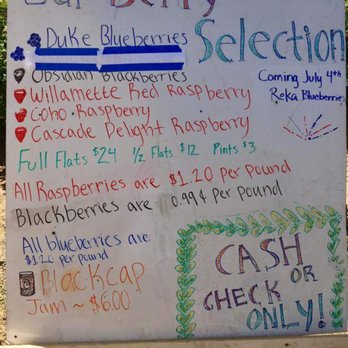 Our Berry
Selection
Duke Blueberries
Obsidian Blackberries
Willamette Red Raspberry
Coho Raspberry
Cascade Delight Raspberry
Coming July 4th
Reka Blueberries
Full Flats $24 ½ Flats $12 Pints $3
All Raspberries are $1.20 Per Pound
Blackberries are 0.99¢ Per pound
All blueberries are
$1.20 per pound
Blackcap
Jam ~ $6.00
CASH
OR
CHECK
ONLY!